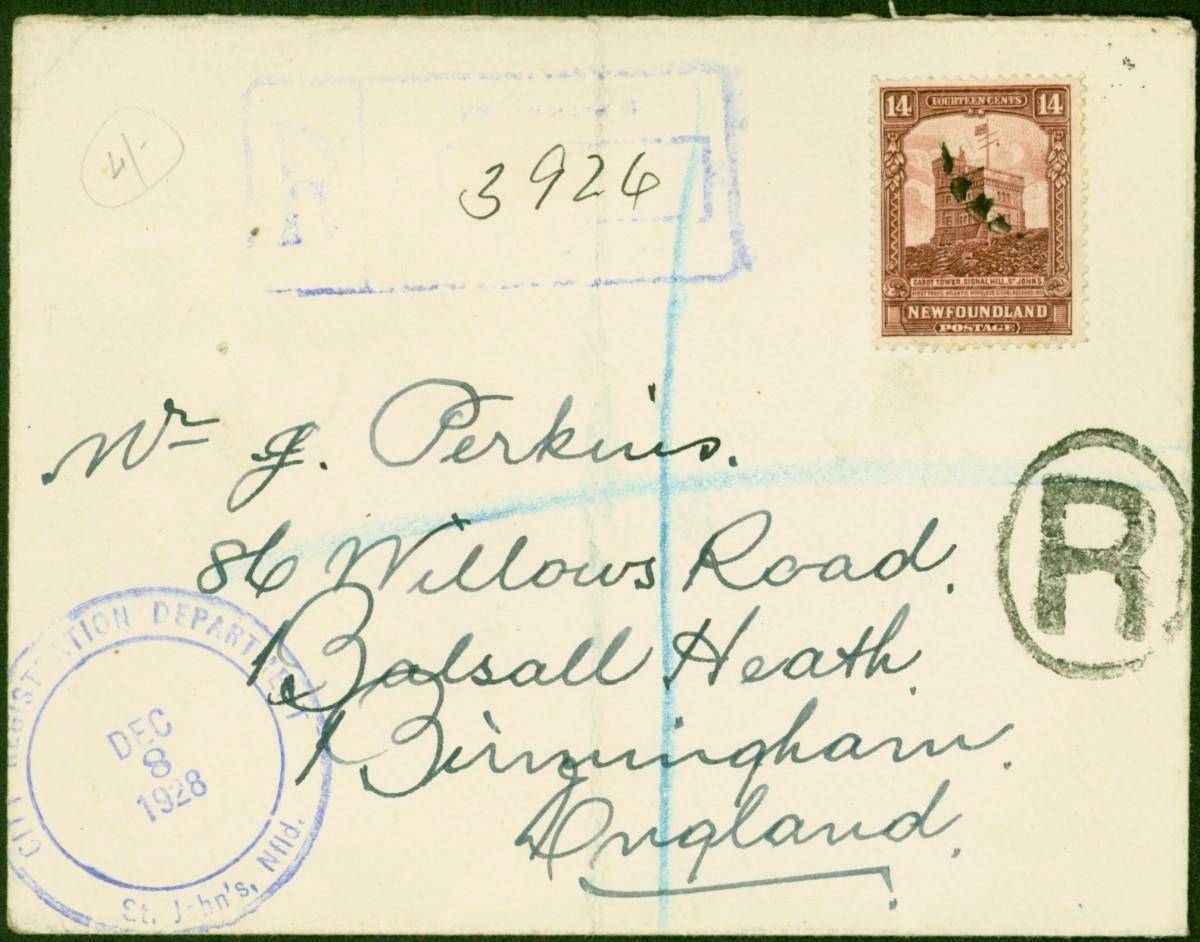 4/-
R
3926
14 FOURTEEN CENTS 14
CABOT TOWER, SIGNAL HILL, ST JOHN'S
NEWFOUNDLAND
POSTAGE
Mr J. Perkins.
86 Willows Road.
Balsall Heath.
Birmingham.
England.
R
CITY REGISTRATION DEPARTMENT
DEC
8
1928
St. John's, Nfld.